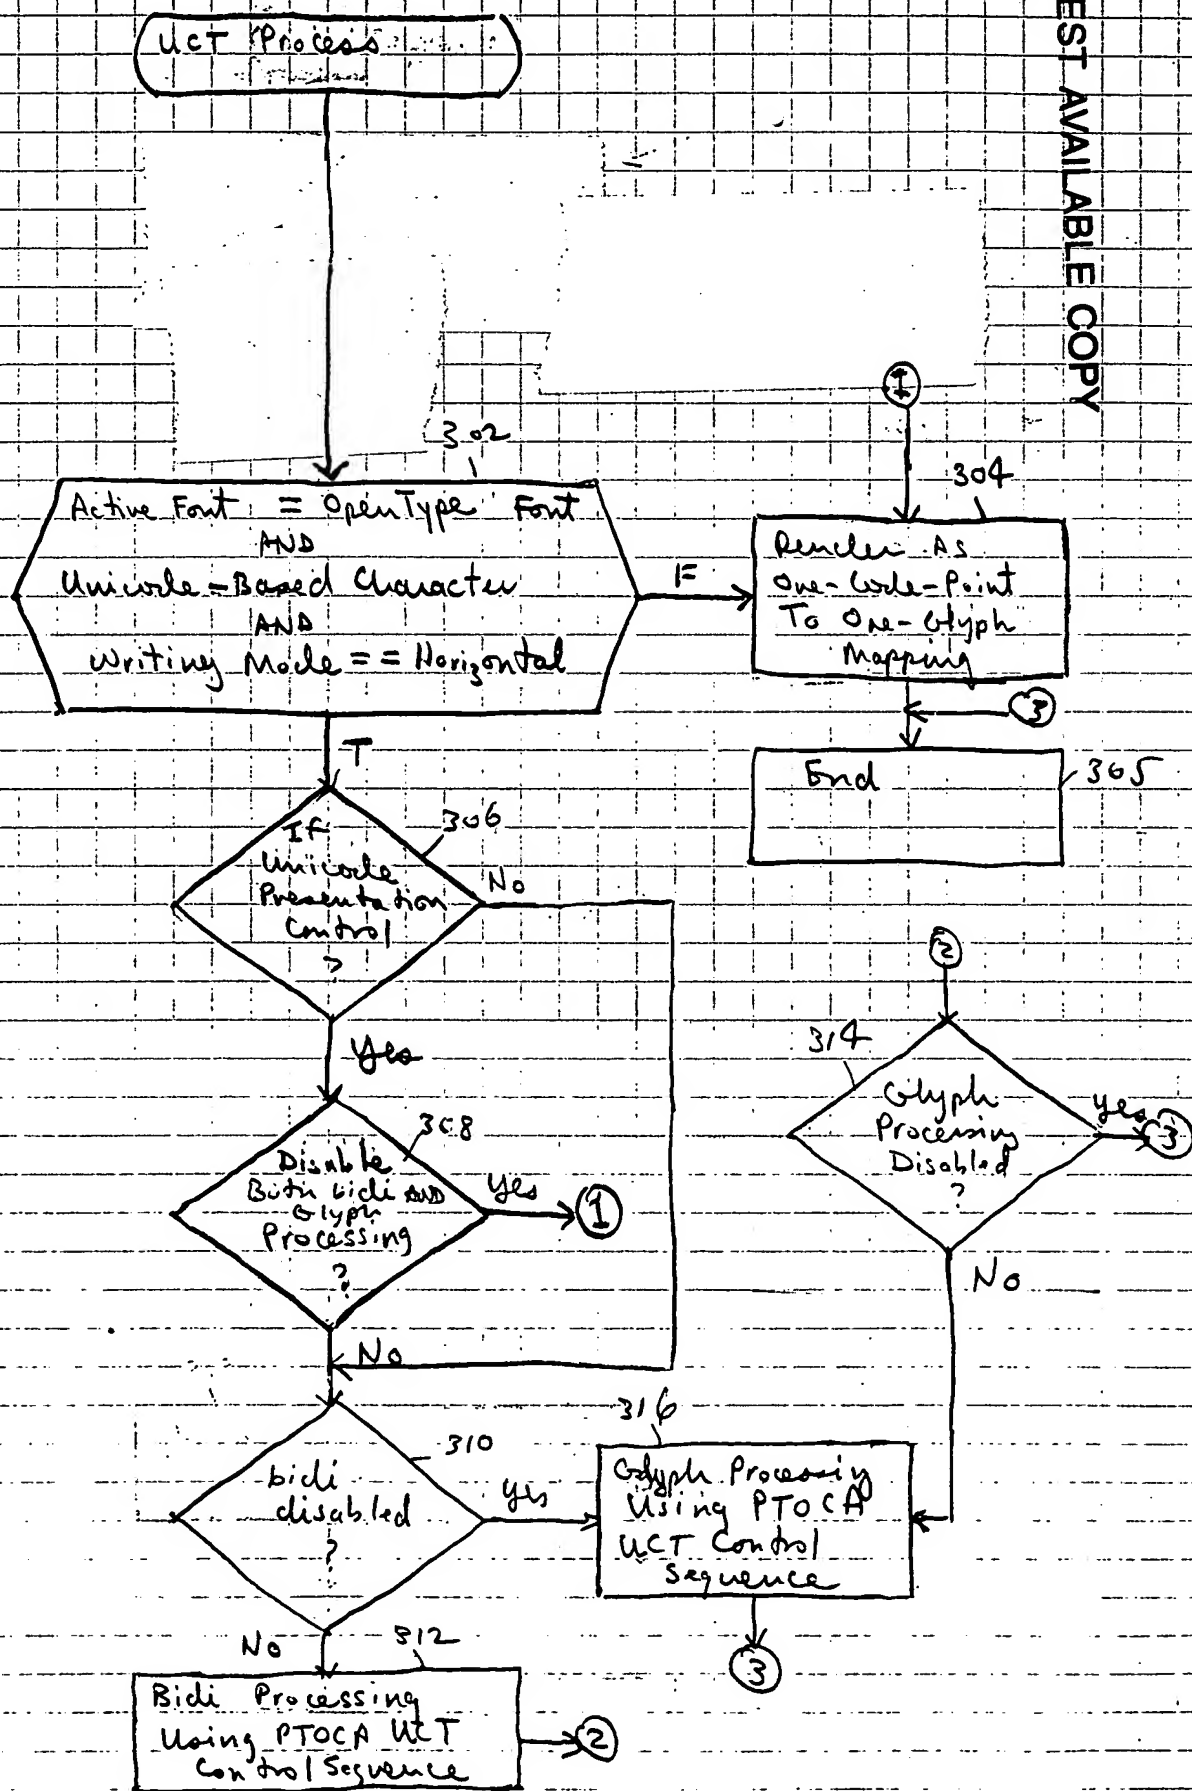 UCT Process
EST AVAILABLE COPY
1
302
304
Active Font = OpenType Font
AND
Unicode-Based Character
AND
Writing Mode == Horizontal
F
Render As
One-Code-Point
To One-Glyph
Mapping
3
End
305
T
306
If
Unicode
Presentation
Control
?
No
Yes
308
Disable
Both bidi AND
Glyph
Processing
?
yes
1
No
2
314
Glyph
Processing
Disabled
?
yes
3
No
310
bidi
disabled
?
yes
316
Glyph Processing
Using PTOCA
UCT Control
Sequence
3
No
312
Bidi Processing
Using PTOCA UCT
Control Sequence
2